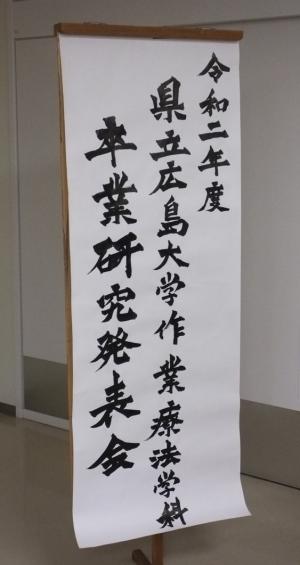 令和二年度
県立広島大学作業療法学科
卒業研究発表会